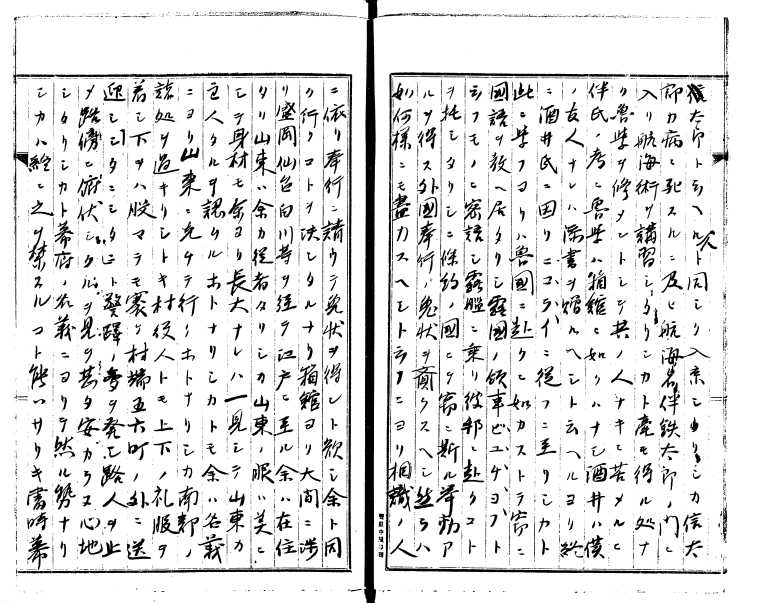 猿太郎ト云ヘル人ト同シク入京シ由リシカ信太
郎カ病ニ死スルニ及ヒ航海者伴鉄太郎ノ門ニ
入リ航海術ヲ講習シタリシカト産モ得ル処ナ
ク魯学ヲ修メントシテ其ノ人ナキニ苦メルニ
伴氏ノ考ニ魯学ハ箱館ニ如クハナシ酒井ハ僕
ノ友人ナレハ添書ヲ贈ルヘシト云ヘルヨリ終
ニ酒井氏ニ因リニコライニ従フニ至リシカト
此ニ学フヨリハ魯国ニ赴クニ如カストテ窃ニ
国語ヲ教ヘ居タリシ露国ノ領事ビユゲヨフト
云フモノニ密談シ露艦ニ乗リ彼邦ニ赴クコト
ヲ托シタリシニ條約ノ国ニテ窃ニ斯ル挙動ア
ルヲ得ス外国奉行ノ免状ヲ齎クスヘシ然ラハ
如何様ニモ尽力スヘシト云フニヨリ相識ノ人
ニ依リ奉行ニ請ウテ免状ヲ得ント欲シ余ト同
ク行クコトヲ決シタルナリ箱館ヨリ大間ニ渉
リ盛岡仙台白川等ヲ経テ江戸ニ至ル余ハ在住
タリ山東ハ余カ従者タリシカ山東ノ服ハ美ニ
シテ身材モ余ヨリ長大ナレハ一見シテ山東カ
主人タルヲ認ムルホトナリシカトモ余ハ名義
ニヨリ山東ニ先タテ行クホトナリシカ南部ノ
諸処ヲ過キリシトキ村役人トモ上下ノ礼服ヲ
着シ下ヲハ股マテモ褰リ村端五六町ノ外ニ送
迎シシタニシタニト警蹕ノ声ヲ発シ路人ヲ止
メ路傍ニ俯伏シタルヲ見テ甚タ安カラヌ心地
シタリシカト幕府ノ名義ニヨリテ然ル勢ナリ
シカハ経ニ之ヲ禁スルコト能ハサリキ当時幕